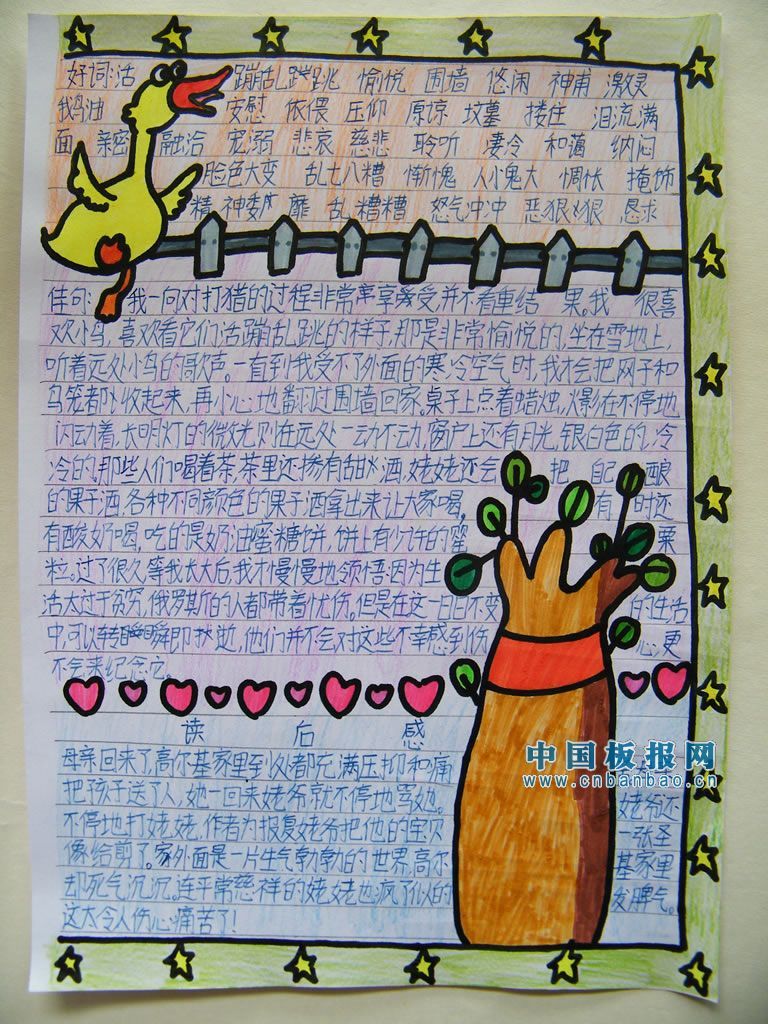 好词:活 蹦乱跳 愉悦 围墙 悠闲 神甫 激灵
鹅油 安慰 依偎 压仰 原谅 坟墓 搂住 泪流满
面 亲密 融洽 宠溺 悲哀 慈悲 聆听 凄冷 和蔼 纳闷
脸色大变 乱七八糟 惭愧 人小鬼大 惆怅 掩饰
精神委靡 乱糟糟 怒气冲冲 恶狠狠 恳求
佳句: 我一向对打猎的过程非常享受,并不看重结 果。我 很喜
欢小鸟,喜欢看它们活蹦乱跳的样子,那是非常愉悦的,坐在雪地上,
听着远处小鸟的歌声。一直到我受不了外面的寒冷空气时,我才会把网子和
鸟笼都收起来,再小心地翻过围墙回家。桌子上点着蜡烛,火影在不停地
闪动着,长明灯的微光则在远处一动不动,窗户上还有月光,银白色的,冷
冷的。那些人们喝着茶,茶里还掺有甜酒,姥姥还会 把 自己 酿
的果子酒,各种不同颜色的果子酒拿出来让大家喝。 有 时还
有酸奶喝,吃的是奶油蜜糖饼,饼上有少许的罂 粟
粒。过了很久,等我长大后,我才慢慢地领悟:因为生
活太过于贫穷,俄罗斯的人都带着忧伤。但是在这一日日不变 的生活
中,可以转瞬即逝,他们并不会对这些不幸感到伤 心,更
不会来纪念它。
读 后 感
母亲回来了,高尔基家里到处都充满压抑和痛
把孩子送了人,她一回来姥爷就不停地骂她。 姥爷还
不停地打姥姥,作者为报复姥爷把他的宝贝 一张圣
像给剪了。家外面是一片生气勃勃的世界,高尔 基家里
却死气沉沉。连平常慈祥的姥姥也疯了似的 发脾气。
这太令人伤心痛苦了!
中国板报网
www.cnbanbao.cn